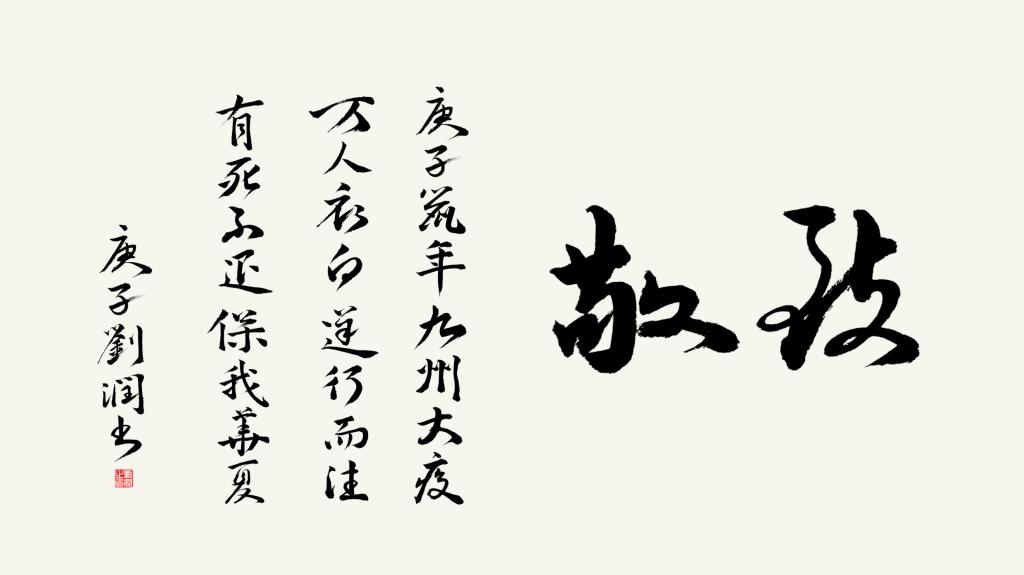 致敬
庚子鼠年九州大疫
万人衣白逆行而往
有死不退保我華夏
庚子劉润书